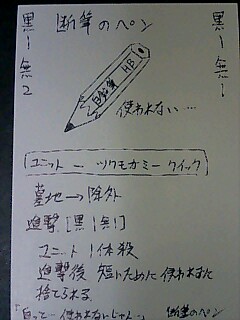 黒1無2
断筆のペン
黒1無1
白鉛筆 HB
使われない…
ユニット ー ツクモガミ クイック
墓地→除外
進撃[黒1無1]
ユニット1体殺
進撃後 短いために使われずに
捨てられる
「白って…使われないじゃん…」 断筆のペン